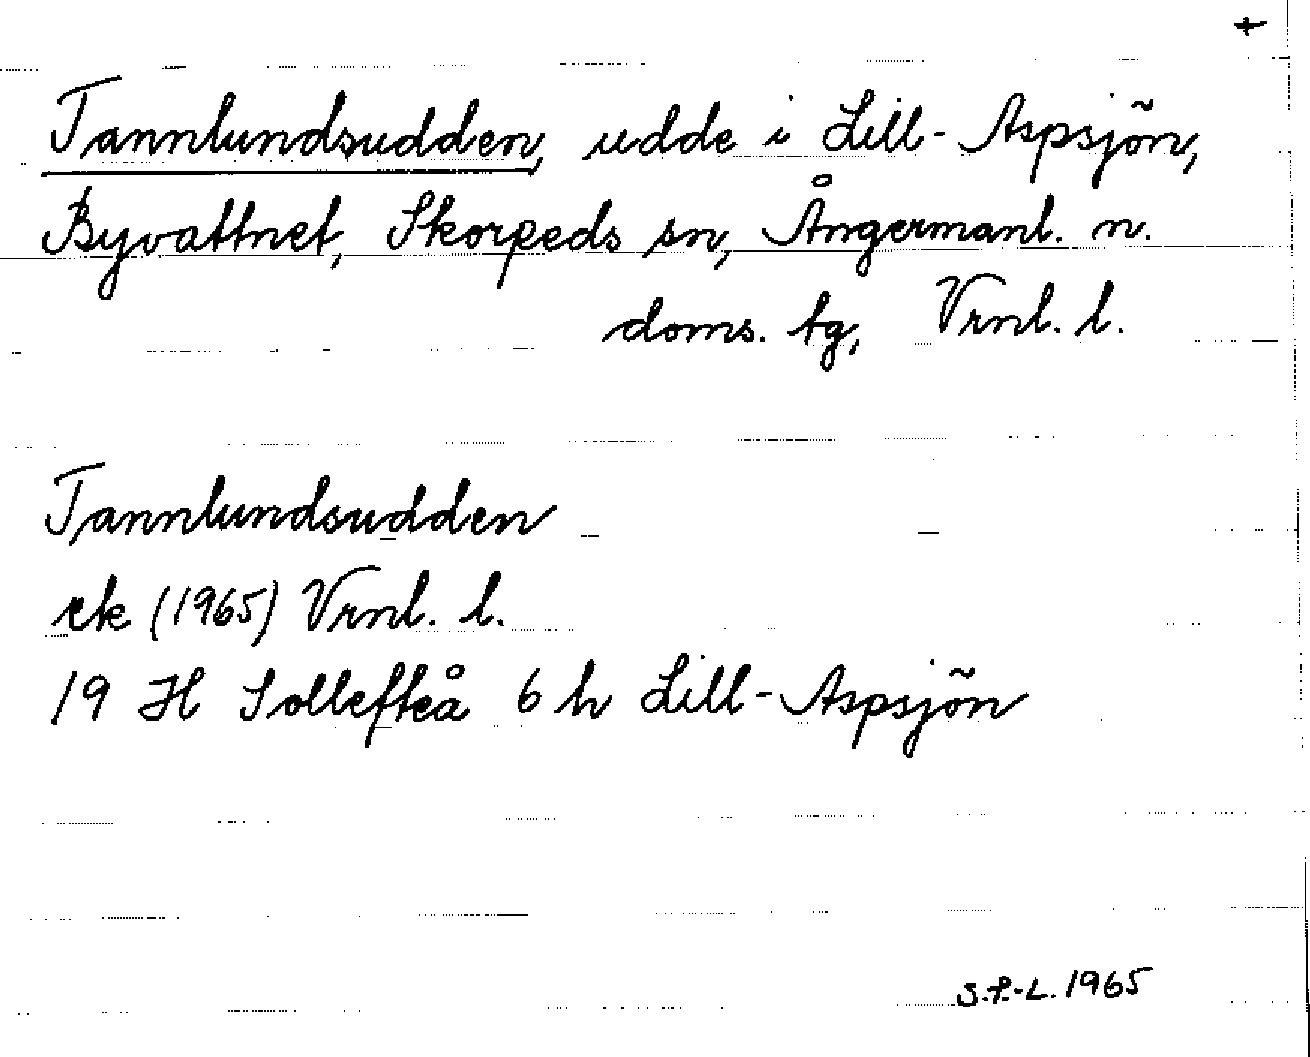 +
Tannlundsudden, udde i Lill-Aspsjön,
Byvattnet, Skorpeds sn, Ångermanl. n.
doms. tg, Vrnl. l.
Tannlundsudden
ek (1965) Vrnl. l.
19 H Sollefteå 6 h Lill-Aspsjön
S.P.-L. 1965